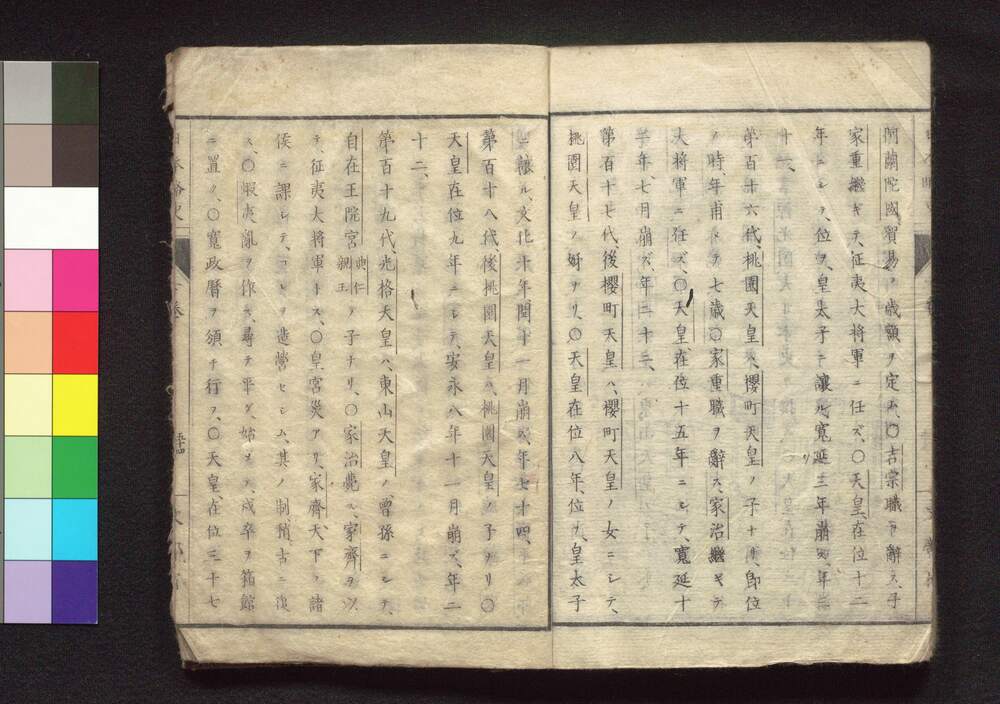 阿蘭陀國、貿易ノ歲額ヲ定ム、〇吉宗職ヲ辭ス、子
家重繼ギテ、征夷大將軍ニ任ズ、〇天皇、在位十二
年ニシテ、位ヲ皇太子ニ讓ル、寬延三年崩ズ、年三
十一、
第百十六代、桃園天皇ハ、櫻町天皇ノ子ナリ、卽位
ノ時、年甫メテ七歲、〇家重職ヲ辭ス、家治繼ギテ
大將軍ニ任ズ、〇天皇在位十五年ニシテ、寬延十
年、七月崩ズ、年二十三、
第百十七代、後櫻町天皇ハ、櫻町天皇ノ女ニシテ、
桃園天皇ノ姊ナリ、〇天皇在位八年、位ヲ皇太子
ニ讓ル、文化十年、閏十一月崩ズ、年七十四、
第百十八代、後桃園天皇ハ、桃園天皇ノ子ナリ、〇
天皇在位九年ニシテ、安永八年十一月崩ズ、年二
十二、
第百十九代、光格天皇ハ、東山天皇ノ曾孫ニシテ、
自在王院宮典仁親王ノ子ナリ、〇家治薨ズ、家齊ヲ以
テ、征夷大將軍トス、〇皇宮災アリ、家齊、天下ノ諸
侯ニ課シテ、コレヲ造營セシム、其ノ制稍古ニ復
ス、〇蝦夷亂ヲ作ス、尋テ平グ、始メテ、戍卒ヲ箱館
ニ置ク、〇寬政曆ヲ頒チ行フ、〇天皇、在位三十七